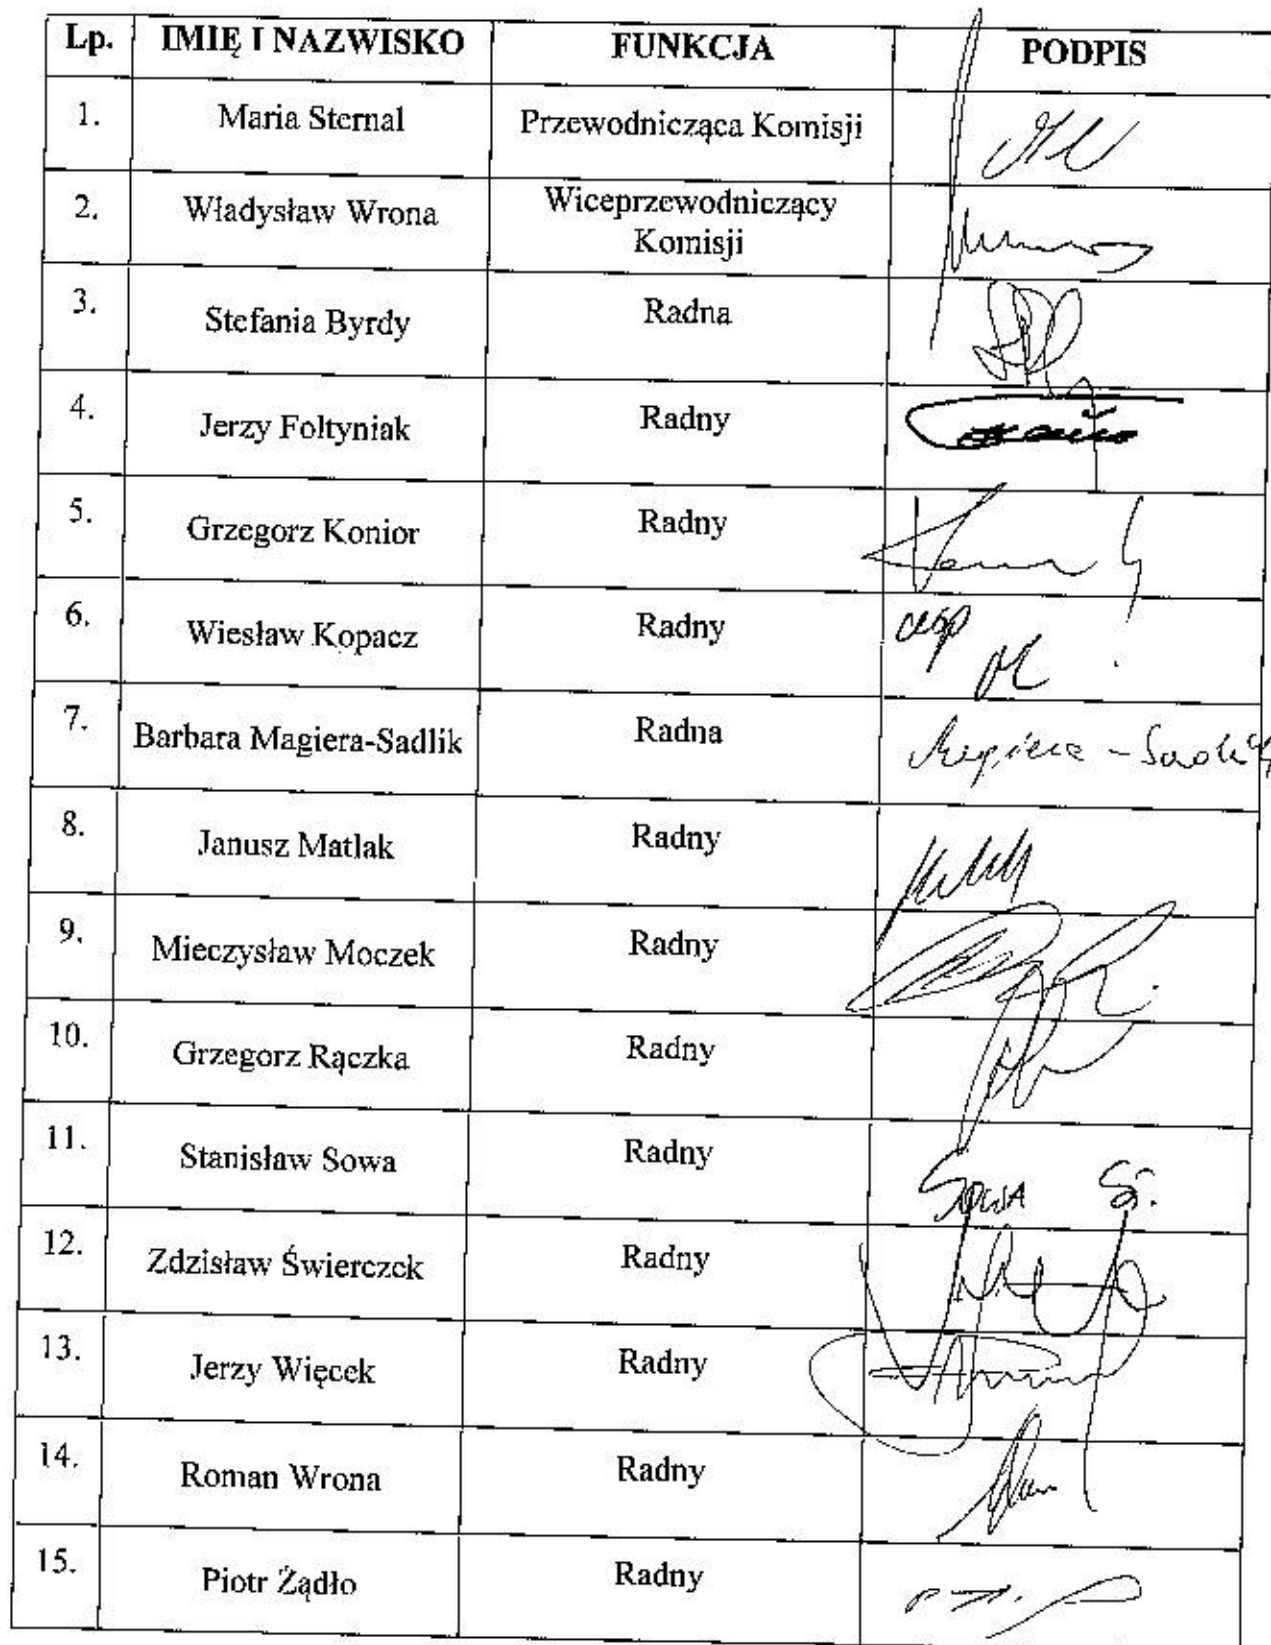 Lp. IMIĘ I NAZWISKO FUNKCJA PODPIS
1. Maria Sternal Przewodnicząca Komisji
2. Władysław Wrona Wiceprzewodniczący
Komisji
3. Stefania Byrdy Radna
4. Jerzy Foltyniak Radny
5. Grzegorz Konior Radny
6. Wiesław Kopacz Radny
7. Barbara Magiera-Sadlik Radna Magiera - Sadlik
8. Janusz Matlak Radny
9. Mieczysław Moczek Radny
10. Grzegorz Rączka Radny
11. Stanisław Sowa Radny Sowa S.
12. Zdzisław Świerczek Radny
13. Jerzy Więcek Radny
14. Roman Wrona Radny
15. Piotr Żądło Radny